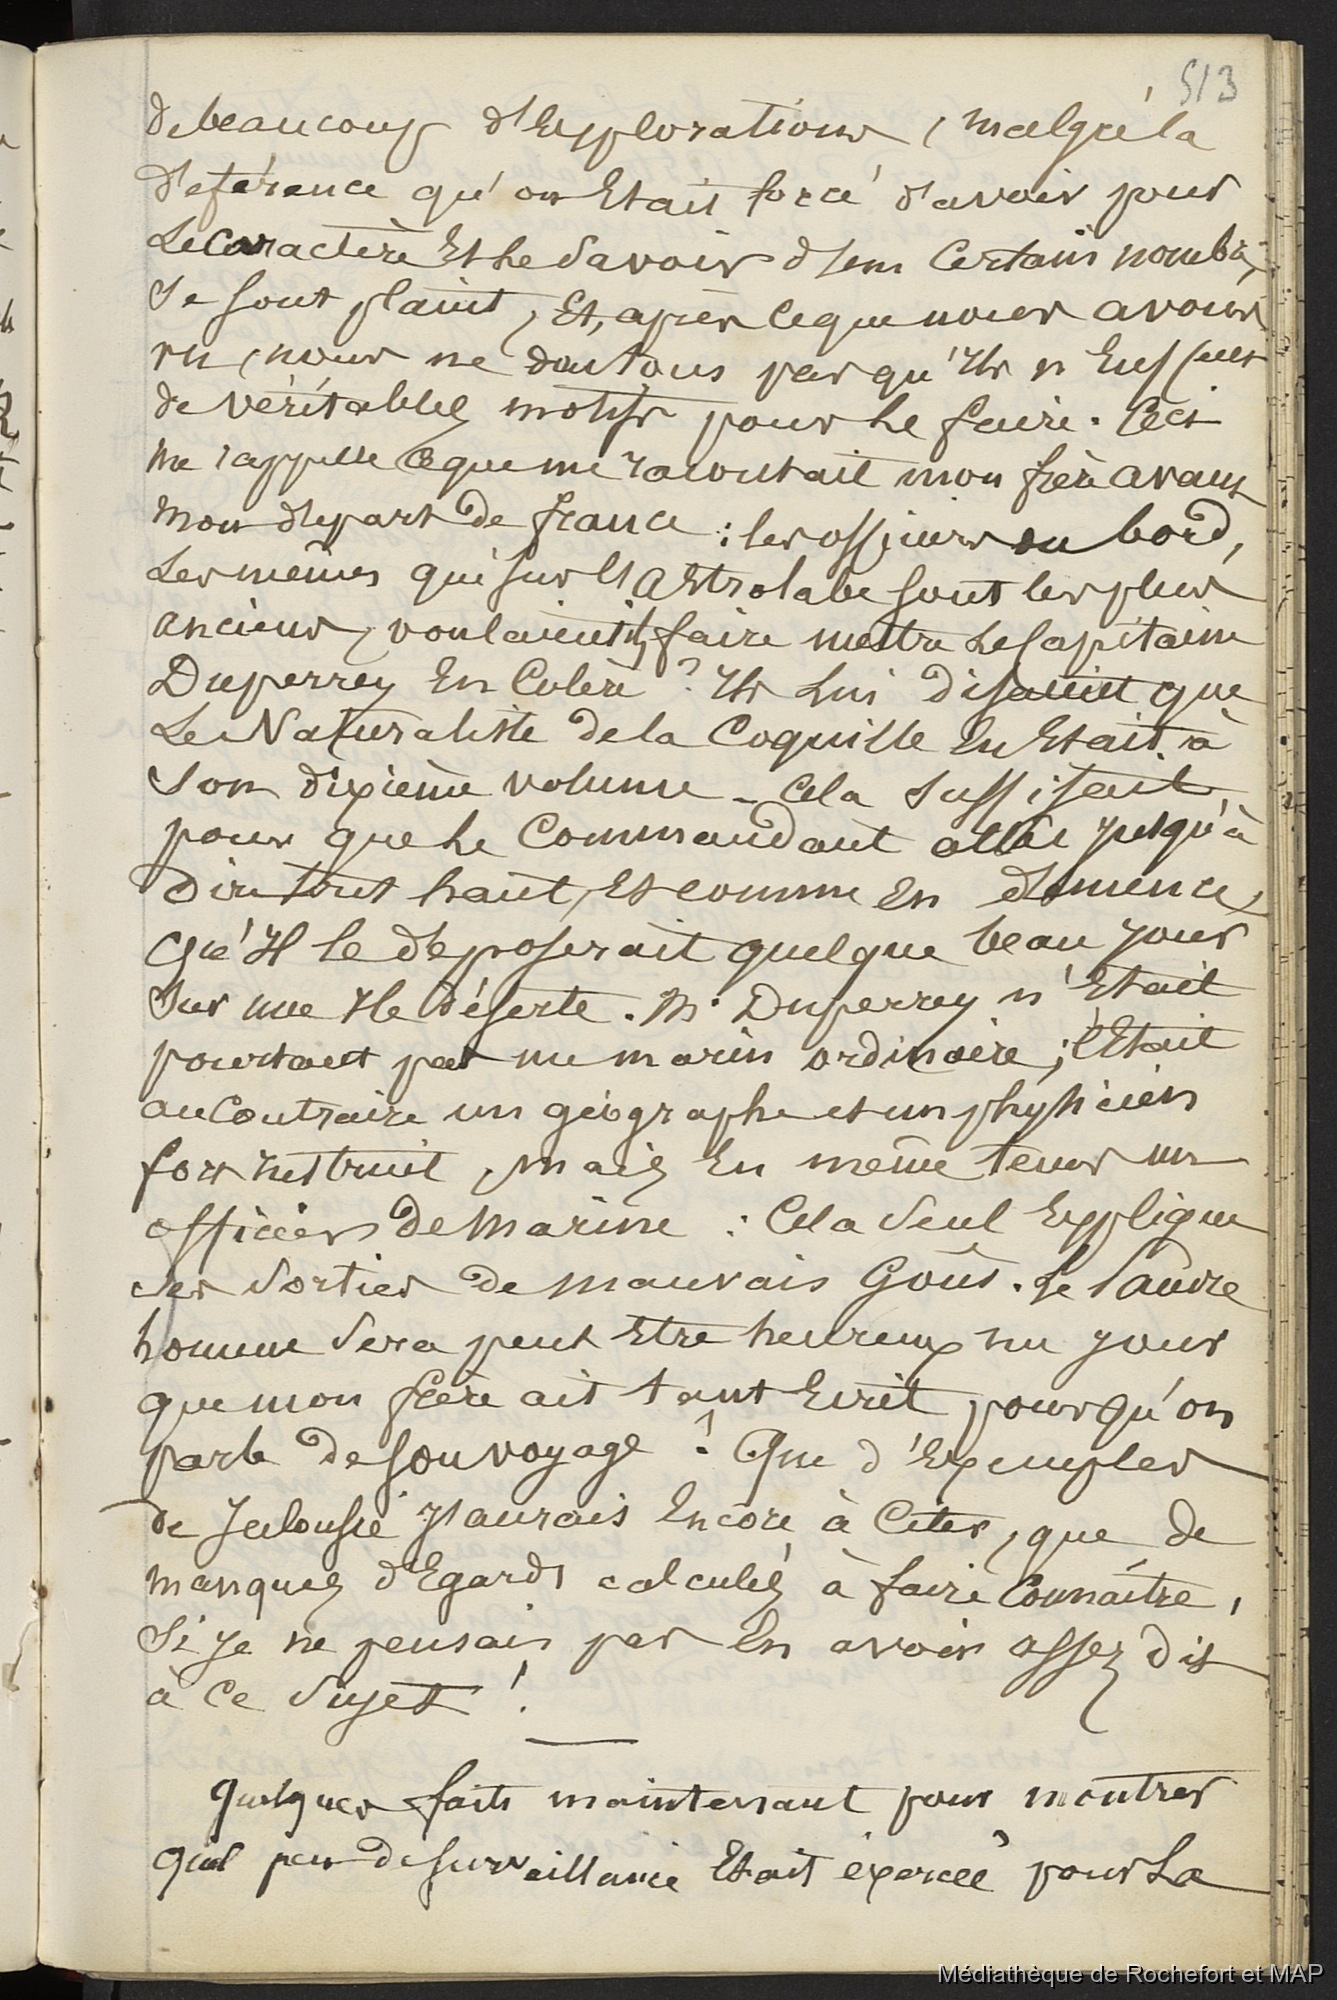 513
de beaucoup d'Explorations, malgré la
déférence qu'on Etait forcé d'avoir pour
Le Caractère Et Le Savoir d'un Certain nombre,
Se sont plaint, Et, après ce que nous avons
vu, nous ne doutons pas qu'Ils n'Eussent
de véritables motifs pour Le faire. Ceci
me rappelle ce que me racontait mon frère avant
mon départ de france : les officiers du bord,
Les mêmes qui sur l'Astrolabe sont les plus
anciens, voulaient ils faire mettre Le Capitaine
Duperrey En Colère ? Ils Lui disaient que
Le Naturaliste de la Coquille En Etait à
Son dixième volume _ Cela Suffisait
pour que Le Commandant allât jusqu'à
dire tout haut, Et comme En démence,
Qu'Il le déposerait quelque beau jour
Sur une Ile déserte. Mr Duperrey n'Etait
pourtant pas un marin ordinaire ; C'Etait
au Contraire un géographe et un physicien
fort Instruit, mais En même tems un
officier de Marine : Cela Seul Explique
ces Sorties de mauvais Goût. Le Pauvre
homme Sera peut Etre heureux un jour
que mon frère ait tant Ecrit pour qu'on
parle de son voyage ! Que d'Exemples
de Jalousie J'aurais Encore à Citer, que de
manques d'Egards calculés à faire Connaître,
Si Je ne pensais pas En avoir assez dit
à Ce Sujet !
Quelques faits maintenant pour montrer
Quel peu de surveillance Etait exercée pour La
Médiathèque de Rochefort et MAP